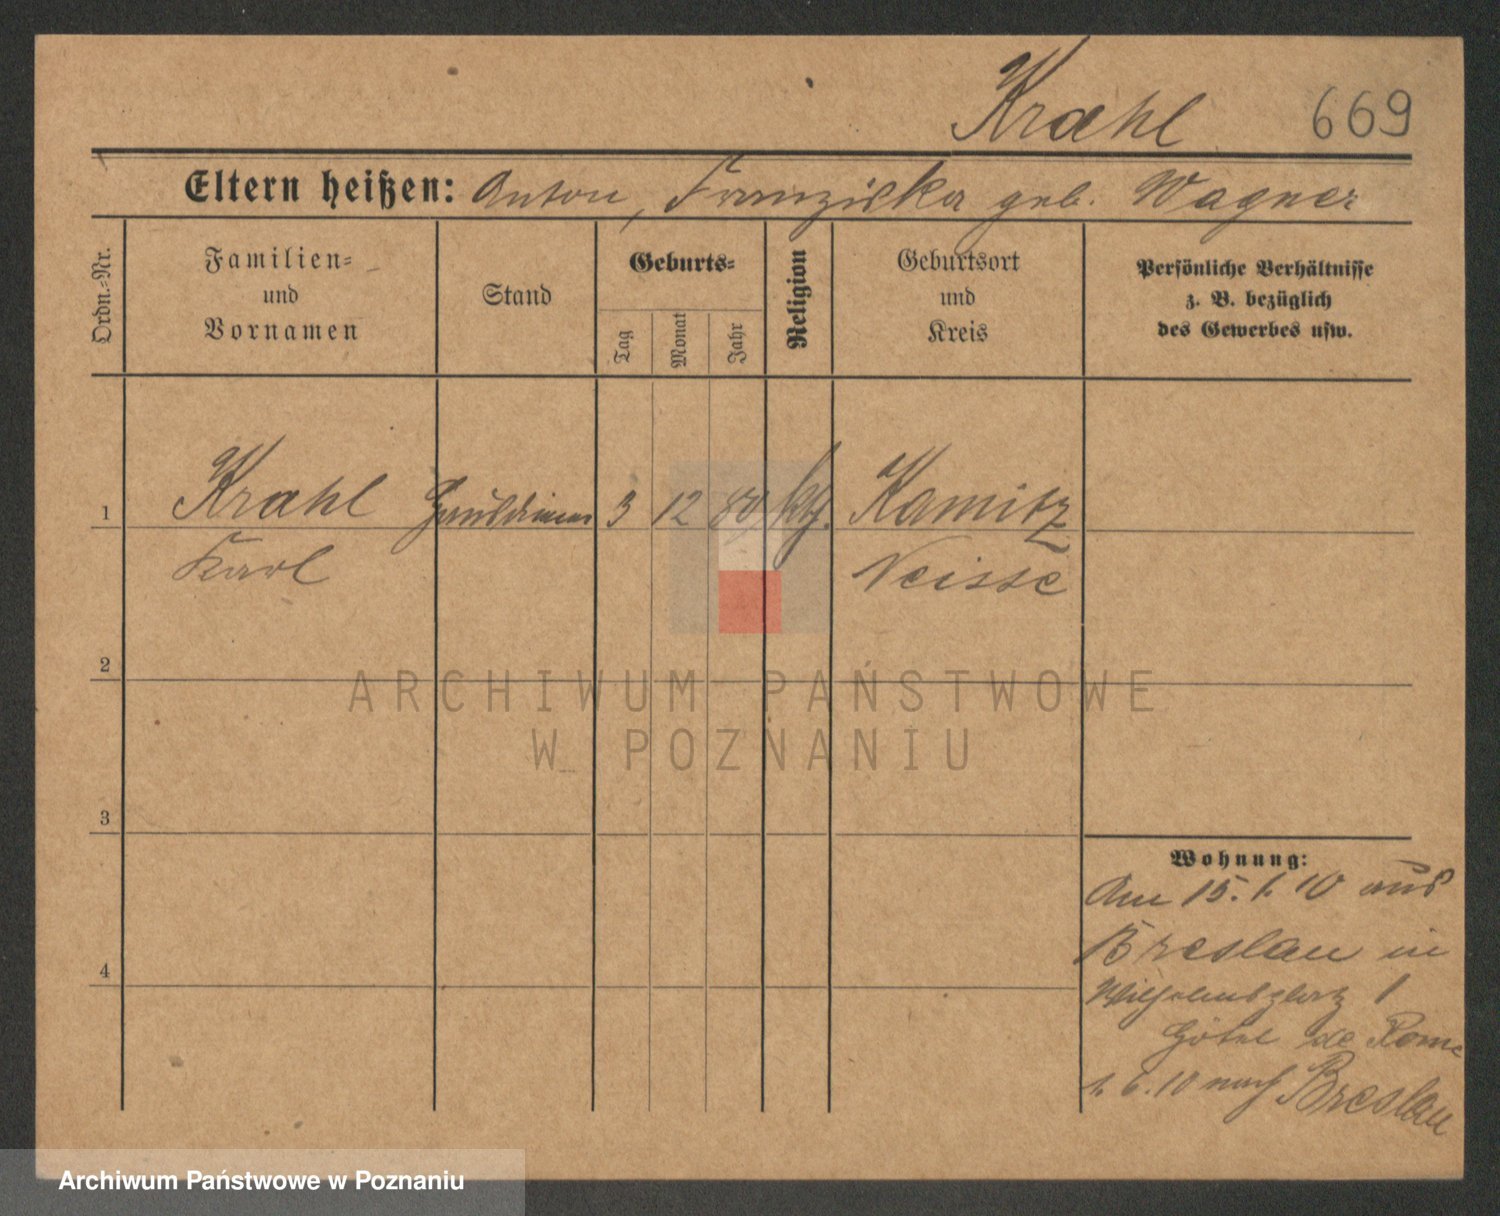 Krahl 669
Eltern heißen: Anton, Franziska geb. Wagner
Ordn.-Nr.
Familien-
und
Vornamen
Stand
Geburts-
Tag
Monat
Jahr
Religion
Geburtsort
und
Kreis
Persönliche Verhältnisse
z. B. bezüglich
des Gewerbes usw.
1 Krahl Hausdiener 3 12 80 kth. Kamitz
Karl Neisse
2
ARCHIWUM PAŃSTWOWE
W POZNANIU
3
Wohnung:
Am 15. 1. 10 aus
Breslau in
4
Wilhelmsplatz 1
Hôtel de Rome
1. 6. 10 nach Breslau
Archiwum Państwowe w Poznaniu